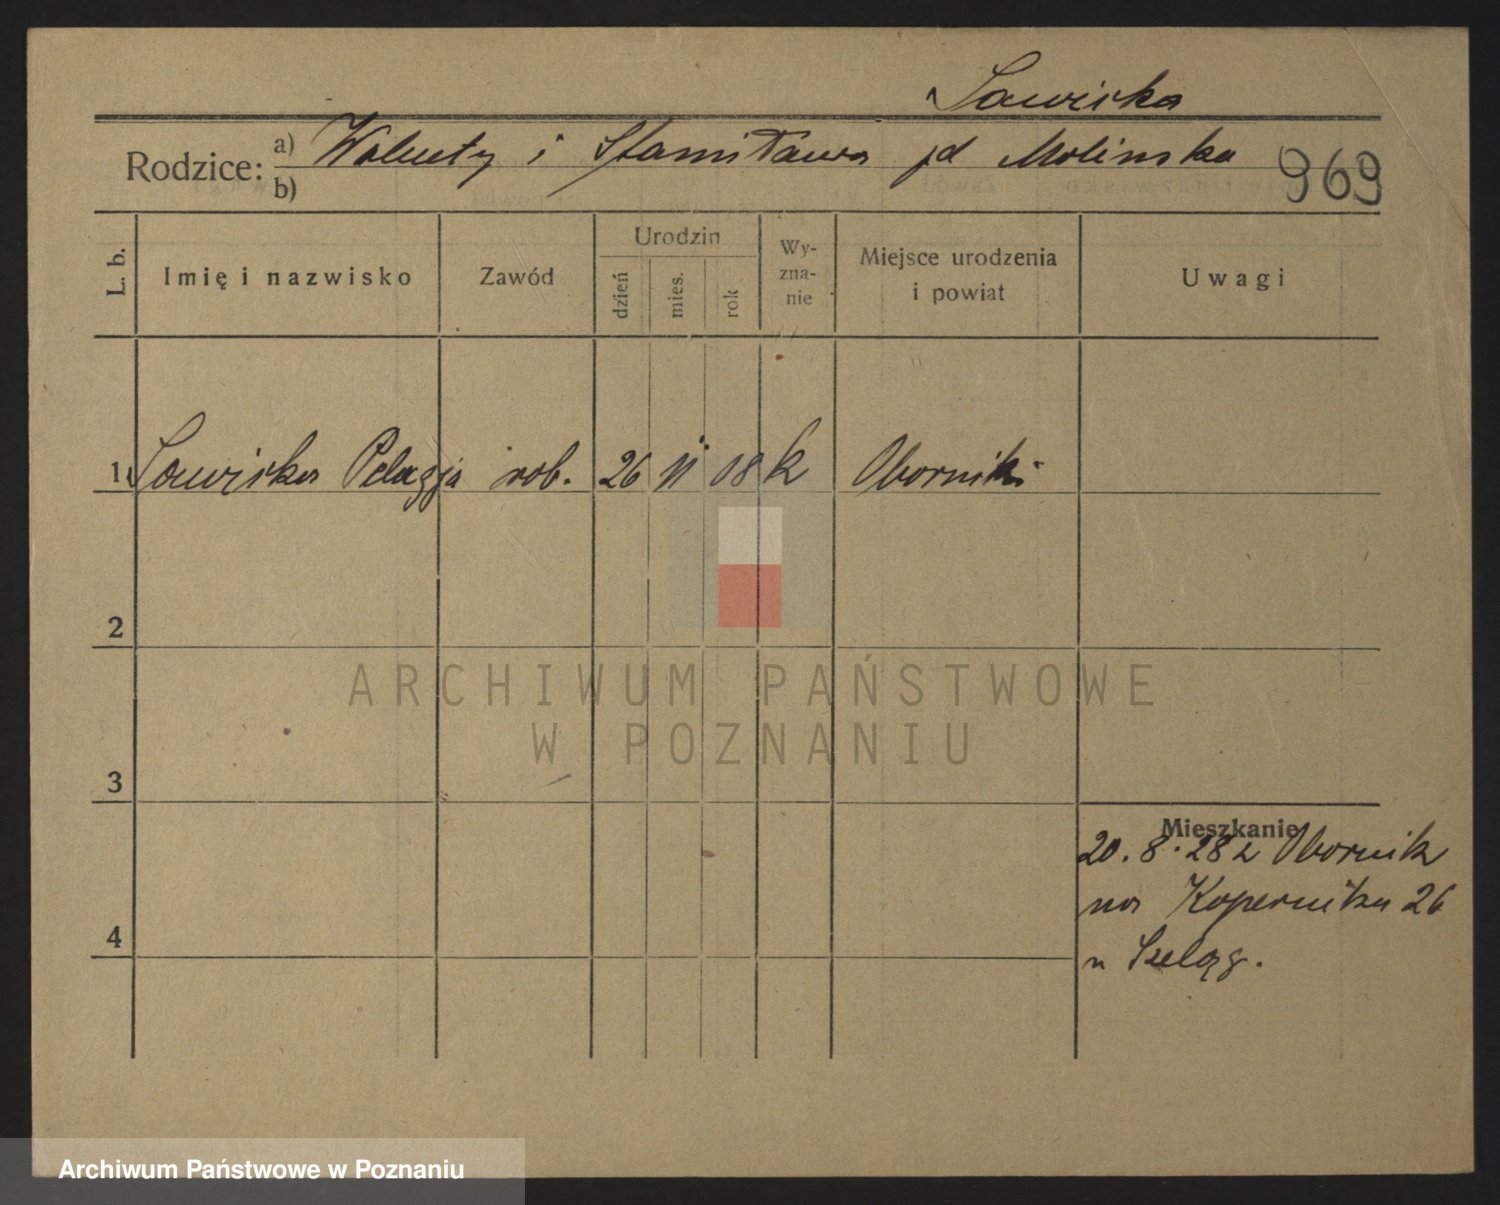 Sawicka
Rodzice: a) Walenty i Stanisława zd Molinska
b)
969
L. b.
Imię i nazwisko
Zawód
Urodzin
dzień
mies.
rok
Wy-
zna-
nie
Miejsce urodzenia
i powiat
Uwagi
1 Sawicka Pelagja rob. 26 11 08 k Oborniki
2
3
4
Mieszkanie
20.8.28 z Obornik
na Kopernika 26
u Szeląg.
ARCHIWUM PAŃSTWOWE
W POZNANIU
Archiwum Państwowe w Poznaniu